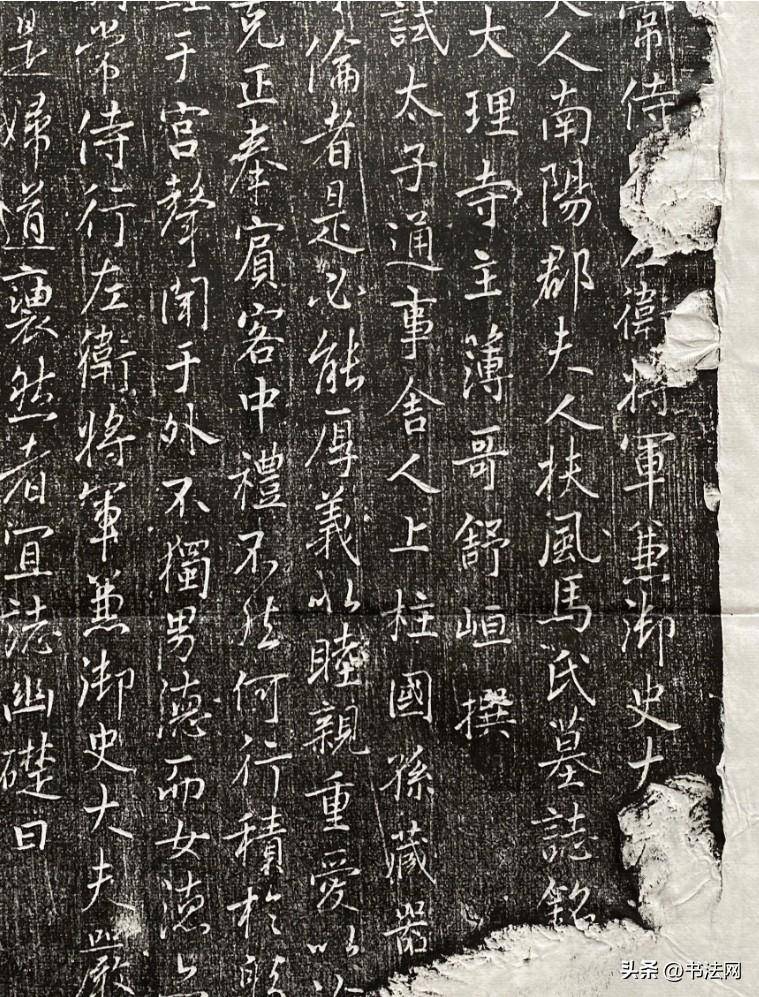 常侍左衛將軍兼御史大
夫人南陽郡夫人扶風馬氏墓誌銘
大理寺主簿哥舒峘撰
試太子通事舍人上柱國孫藏器
倫者是必能厚義以睦親重愛以
克正奉賓客中禮不然何行積於
于宫聲聞于外不獨男德而女德
常侍行左衛將軍兼御史大夫嚴
是婦道襃然者宜誌幽礎曰
头条 @书法网